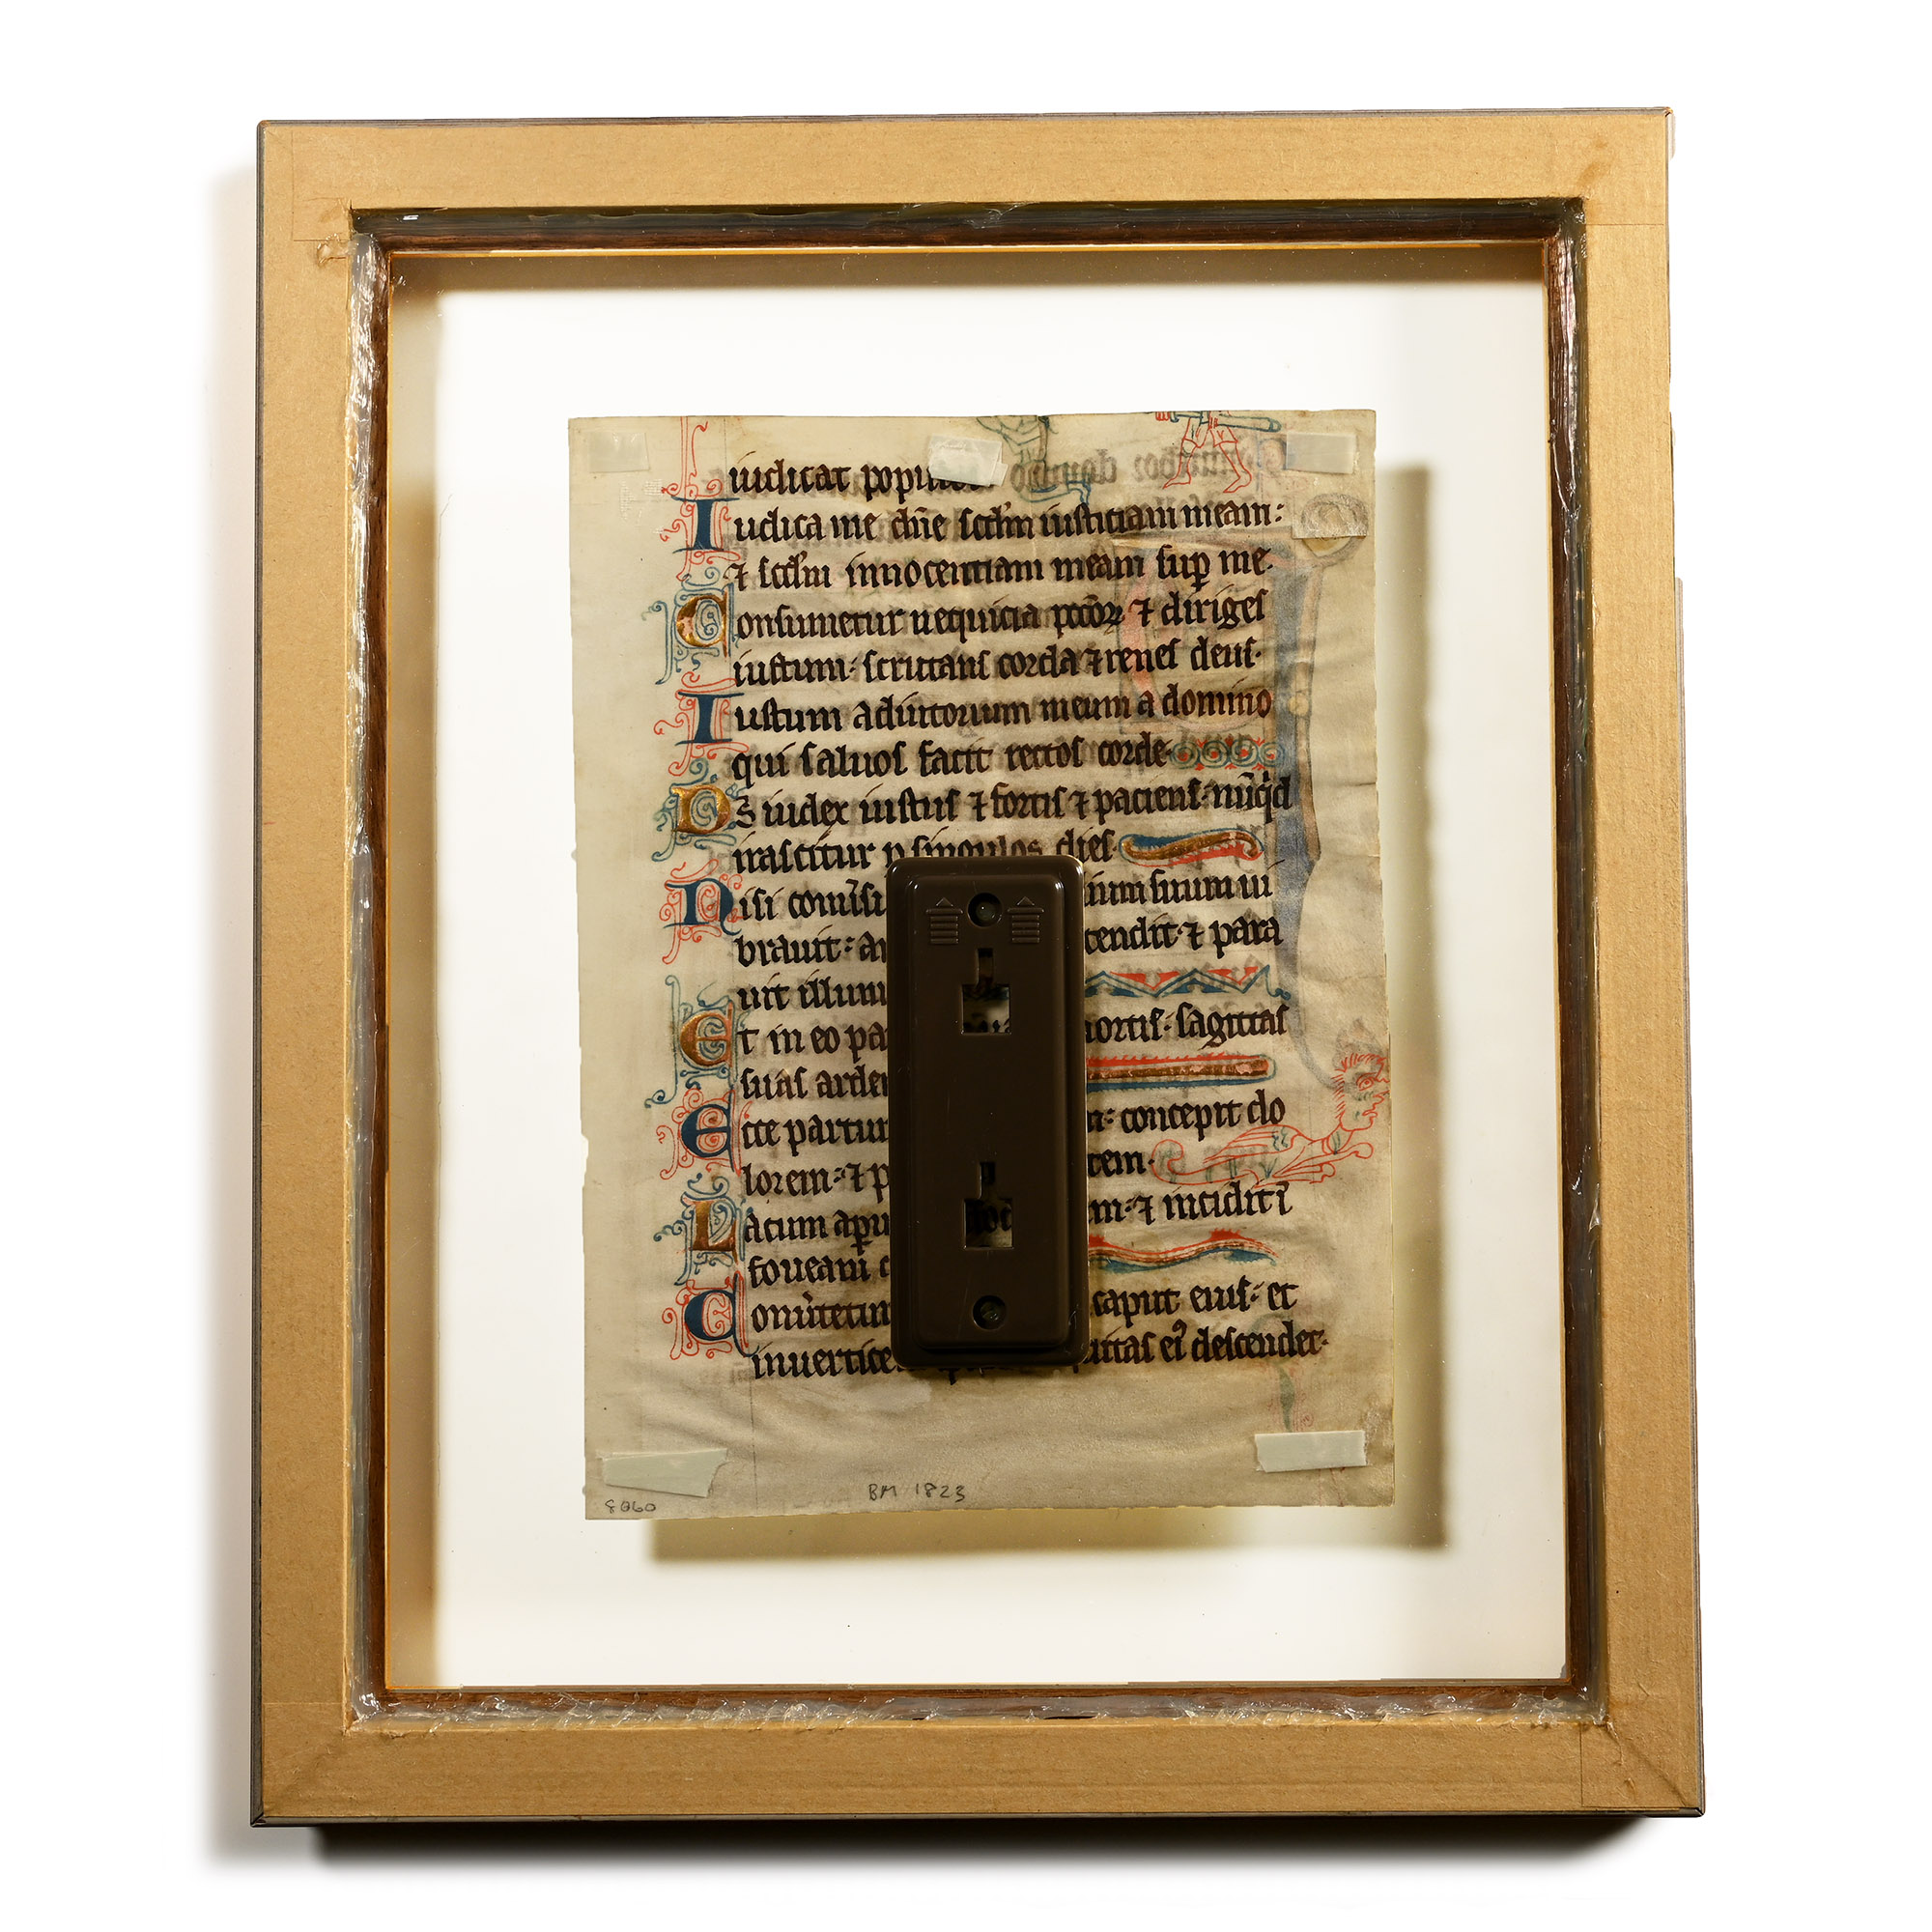 iudicat popu
Iudica me dñe scdm iusticiam meam:
⁊ scdm innocentiam meam sup me.
Consumetur nequicia pccoꝝ ⁊ diriges
iustum: scrutans corda ⁊ renes deus.
Iustum adiutorium meum a domino
qui saluos facit rectos corde
Ds iudex iustus ⁊ fortis ⁊ paciens: nūqd
irascitur p singulos dies.
Nisi conu'si ium suum ui
brauit: ar tendit ⁊ para
uit illum
Et in eo pa mortis: sagittas
suas arden
Ecce partur concepit do
lorem: ⁊ p tem.
Lacum apu m: ⁊ incidit ī
foueam
Conu'tetur caput eius: et
inuertice quitas ei' descendet.
8060
BM 1823